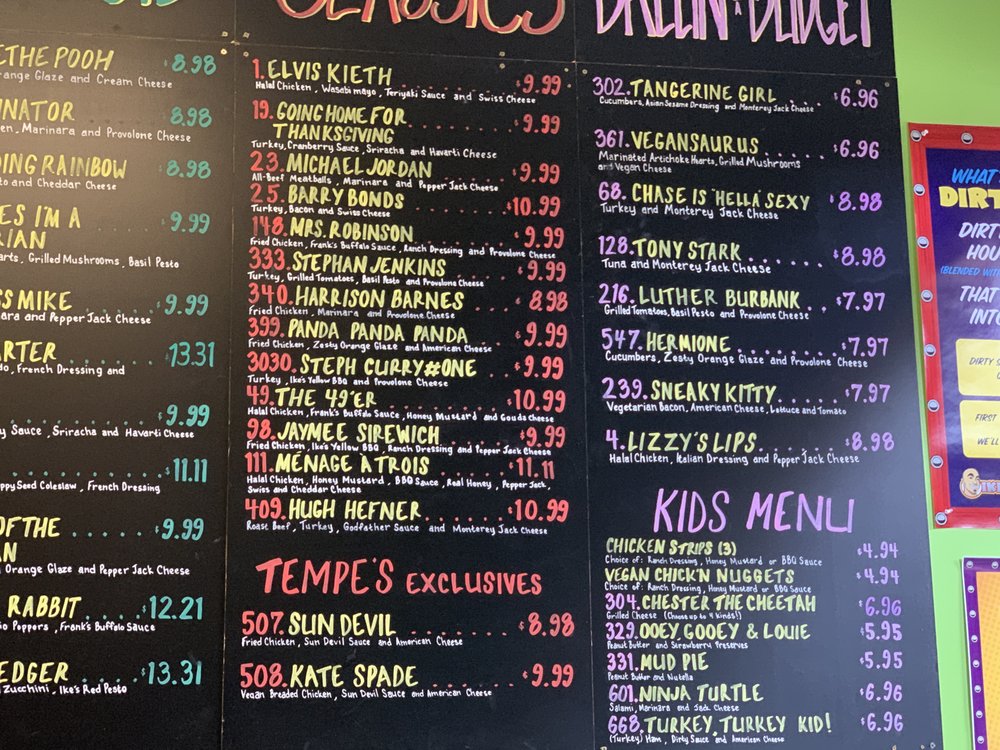 CLASSICS
BALLIN' A BUDGET
THE POOH 8.98
Orange Glaze and Cream Cheese
INATOR 8.98
Marinara and Provolone Cheese
RAINBOW 8.98
and Cheddar Cheese
I'M A $9.99
Grilled Mushrooms, Basil Pesto
MIKE $9.99
and Pepper Jack Cheese
$13.31
French Dressing and
$9.99
Sauce, Sriracha and Havarti Cheese
$11.11
Seed Coleslaw, French Dressing
OF THE $9.99
Orange Glaze and Pepper Jack Cheese
RABBIT $12.21
Poppers, Frank's Buffalo Sauce
EDGER $13.31
Zucchini, Ike's Red Pesto
1. ELVIS KIETH $9.99
Halal Chicken, Wasabi mayo, Teriyaki Sauce and Swiss Cheese
19. GOING HOME FOR
THANKSGIVING $9.99
Turkey, Cranberry Sauce, Sriracha and Havarti Cheese
23. MICHAEL JORDAN $9.99
All-Beef Meatballs, Marinara and Pepper Jack Cheese
25. BARRY BONDS $10.99
Turkey, Bacon and Swiss Cheese
148. MRS. ROBINSON $9.99
Fried Chicken, Frank's Buffalo Sauce, Ranch Dressing and Provolone Cheese
333. STEPHAN JENKINS $9.99
Turkey, Grilled Tomatoes, Basil Pesto and Provolone Cheese
340. HARRISON BARNES 8.98
Fried Chicken, Marinara and Provolone Cheese
399. PANDA PANDA PANDA $9.99
Fried Chicken, Zesty Orange Glaze and American Cheese
3030. STEPH CURRY#ONE $9.99
Turkey, Ike's Yellow BBQ and Provolone Cheese
49. THE 49'ER $10.99
Halal Chicken, Frank's Buffalo Sauce, Honey Mustard and Gouda Cheese
98. JAYMEE SIREWICH $9.99
Fried Chicken, Ike's Yellow BBQ, Ranch Dressing and Pepper Jack Cheese
111. MÉNAGE À TROIS $11.11
Halal Chicken, Honey Mustard, BBQ Sauce, Real Honey, Pepper Jack,
Swiss and Cheddar Cheese
409. HUGH HEFNER $10.99
Roast Beef, Turkey, Godfather Sauce and Monterey Jack Cheese
TEMPE'S EXCLUSIVES
507. SUN DEVIL $8.98
Fried Chicken, Sun Devil Sauce and American Cheese
508. KATE SPADE $9.99
Vegan Breaded Chicken, Sun Devil Sauce and American Cheese
302. TANGERINE GIRL $6.96
Cucumbers, Asian Sesame Dressing and Monterey Jack Cheese
361. VEGANSAURUS $6.96
Marinated Artichoke Hearts, Grilled Mushrooms
and Vegan Cheese
68. CHASE IS 'HELLA' SEXY $8.98
Turkey and Monterey Jack Cheese
128. TONY STARK $8.98
Tuna and Monterey Jack Cheese
216. LUTHER BURBANK $7.97
Grilled Tomatoes, Basil Pesto and Provolone Cheese
547. HERMIONE $7.97
Cucumbers, Zesty Orange Glaze and Provolone Cheese
239. SNEAKY KITTY $7.97
Vegetarian Bacon, American Cheese, Lettuce and Tomato
4. LIZZY'S LIPS $8.98
Halal Chicken, Italian Dressing and Pepper Jack Cheese
KIDS MENU
CHICKEN STRIPS (3) $4.94
Choice of: Ranch Dressing, Honey Mustard or BBQ Sauce
VEGAN CHICK'N NUGGETS $4.94
Choice of: Ranch Dressing, Honey Mustard or BBQ Sauce
304. CHESTER THE CHEETAH $6.96
Grilled Cheese (Choose up to 4 kinds!)
329. OOEY, GOOEY & LOUIE $5.95
Peanut Butter and Strawberry Preserves
331. MUD PIE $5.95
Peanut Butter and Nutella
601. NINJA TURTLE $6.96
Salami, Marinara and Jack Cheese
668. TURKEY, TURKEY KID! $6.96
(Turkey) Ham, Dirty Sauce and American Cheese
WHAT'S
DIRT
DIRT
HOU
(BLENDED WIT
THAT
INT
DIRTY S
FIRST
WE'LL